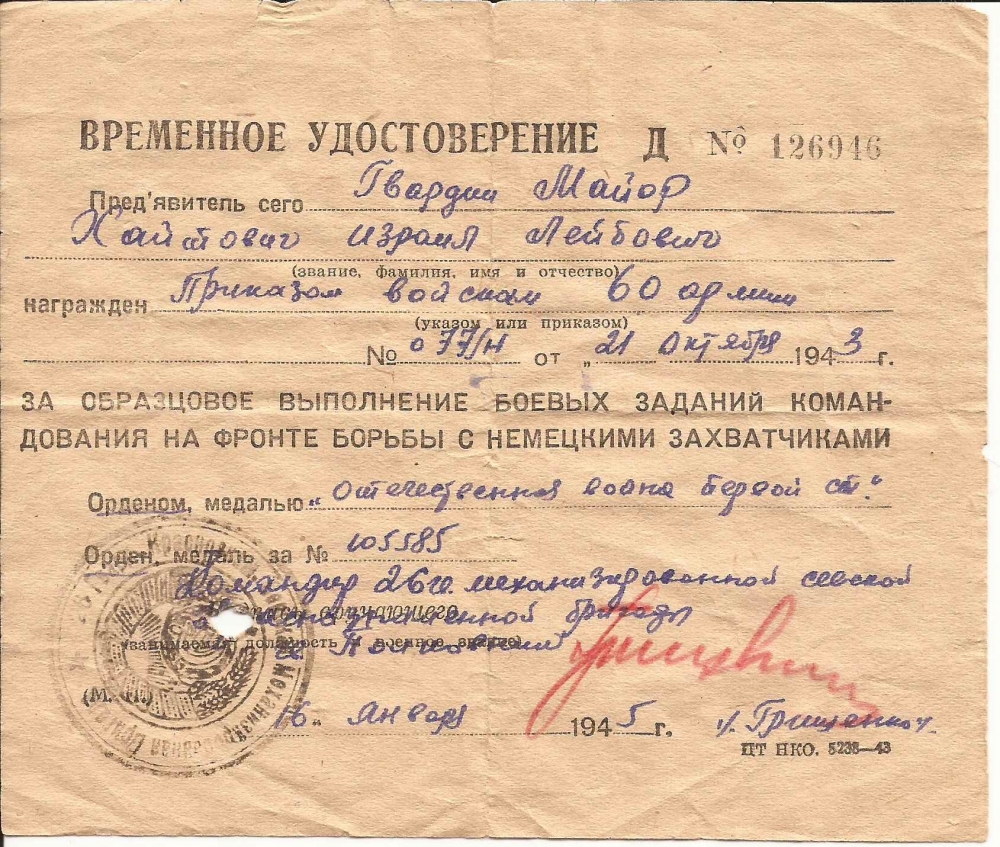 ВРЕМЕННОЕ УДОСТОВЕРЕНИЕ Д № 126946
Пред'явитель сего Гвардии Майор
Хаймович Израил Лейбович
(звание, фамилия, имя и отчество)
награжден Приказом войскам 60 армии
(указом или приказом)
№ 077/Н от „21 Октября 1943 г.
ЗА ОБРАЗЦОВОЕ ВЫПОЛНЕНИЕ БОЕВЫХ ЗАДАНИЙ КОМАН-
ДОВАНИЯ НА ФРОНТЕ БОРЬБЫ С НЕМЕЦКИМИ ЗАХВАТЧИКАМИ
Орденом, медалью „Отечественная война первой ст."
Орден, медаль за № 105585
Командир 26 гв. механизированной севской
Краснознаменной бригады
(занимаемая должность и военное звание)
Полковник
(М. П.)
16 „ Января 1945 г. /Грищенко/
ЦТ НКО. 5238—43